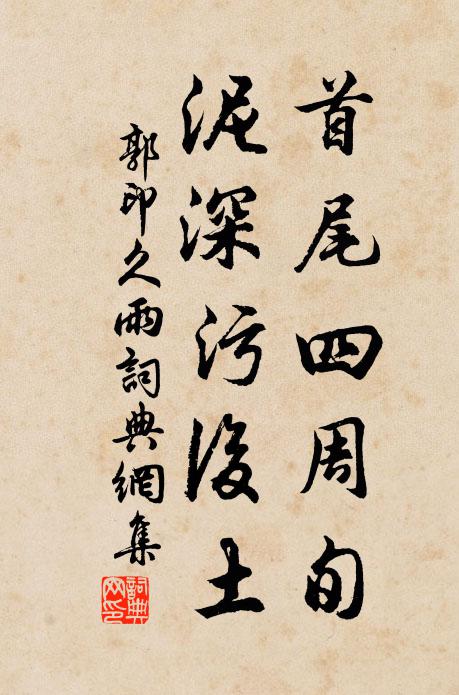 首尾四周旬
泥深污後土
郭印久雨詞典網集
詞典